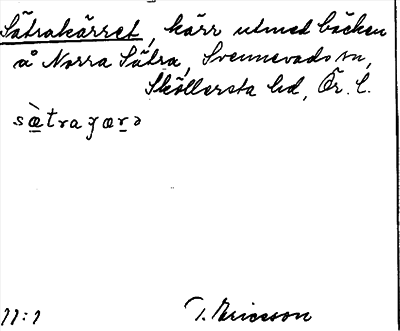 Sätrakärret, kärr utmed bäcken
å Norra Sätra, Svennevads sn,
Sköllersta hd, Ör. l.
11:1 T. Ericsson